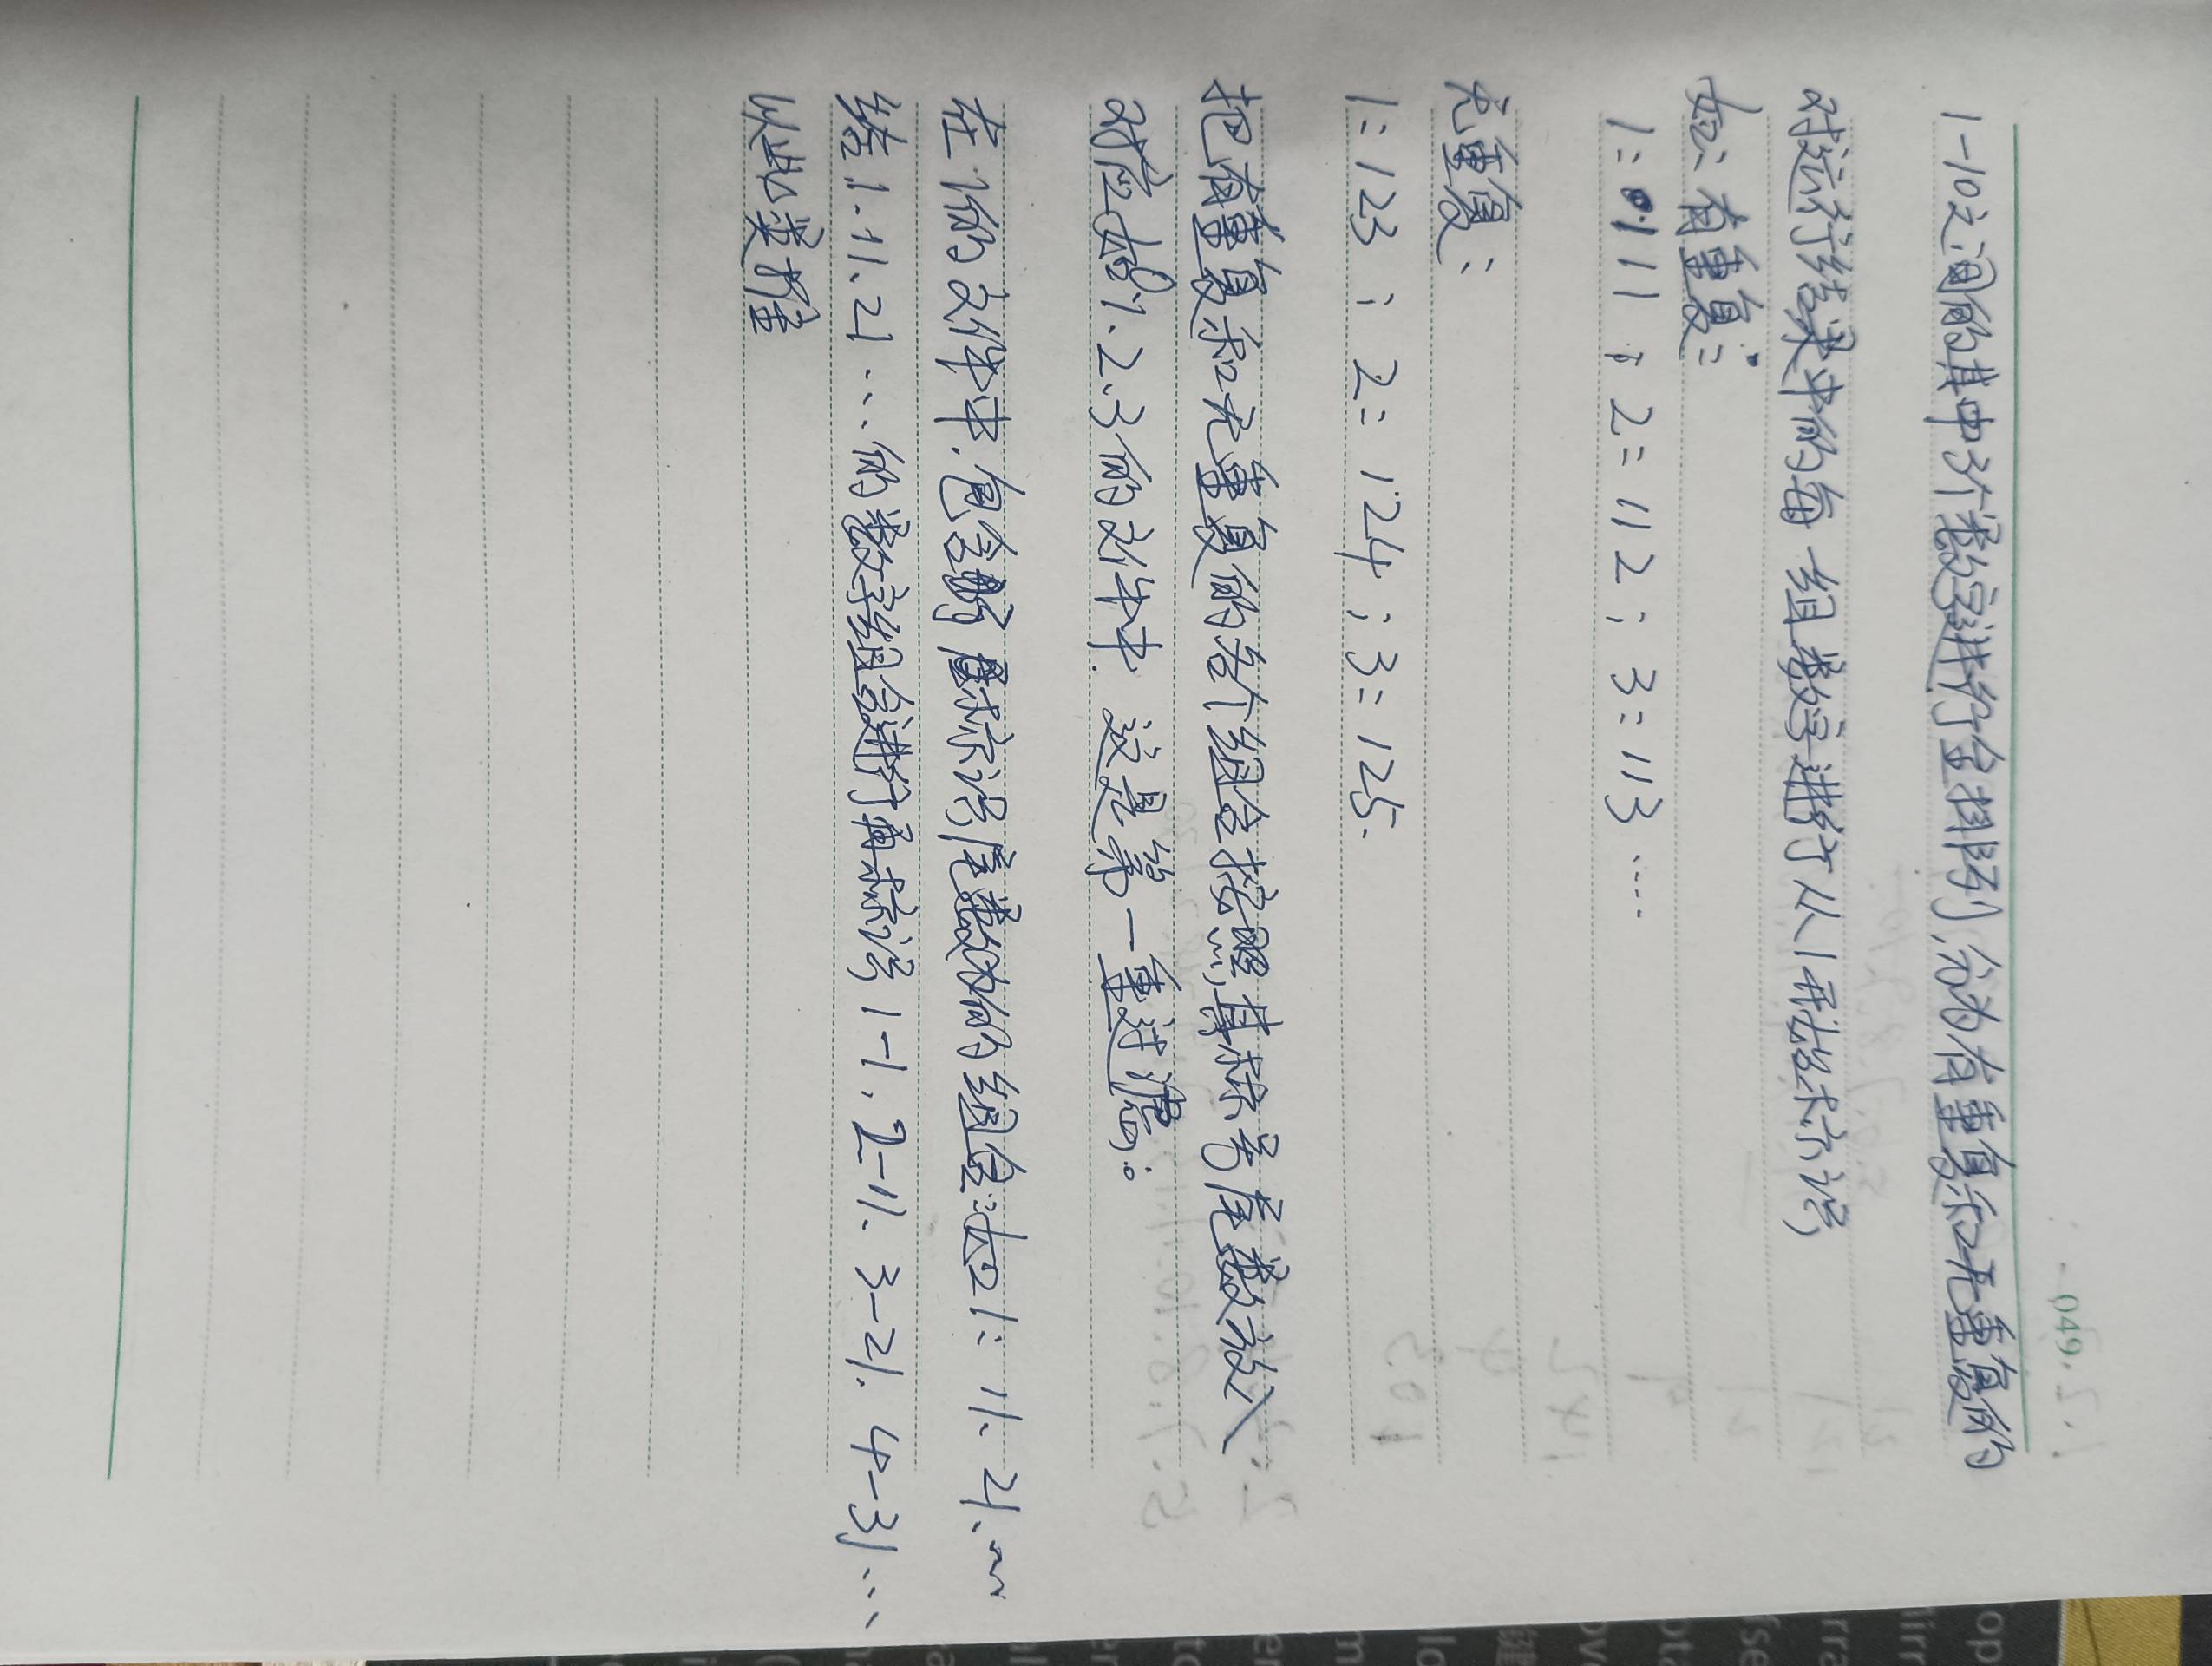 049
1-10之间的其中3个数字进行全排列,分为有重复和无重复的
对运行结果中的每一组数字进行从1开始标识,
如: 有重复:
1:111 ; 2:112 ; 3:113 ····
无重复:
1:123 ; 2:124 ; 3:125.
把有重复和无重复的各个组合按照其标号尾数放入
对应如0、1、2、3的文件中. 这是第一重过滤。
在1的文件中.包含所有标识尾数为1的组合:如1、11、21、…
给1、11、21…的数字组合进行再标识 1-1、2-11、3-21、4-31…
以此类推